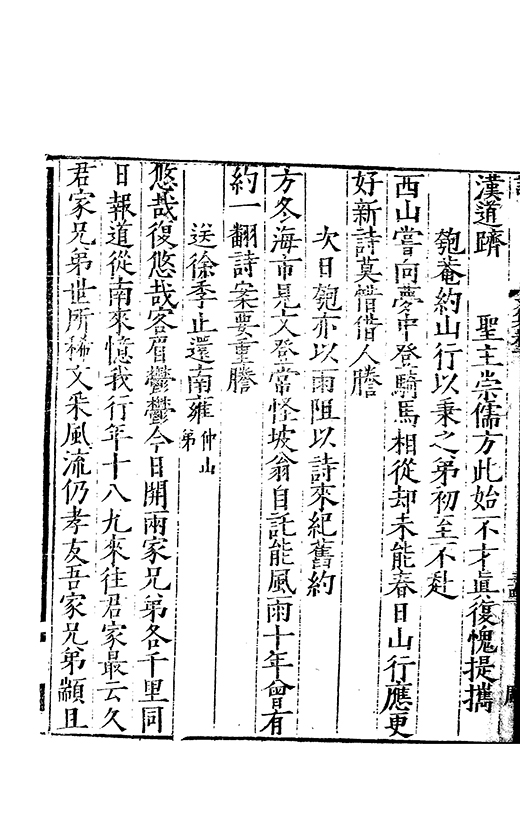 漢道躋　聖主崇儒方此始不才眞復愧提攜
匏菴約山行以秉之弟初至不赴
西山嘗向夢中登騎馬相從却未能春日山行應更
好新詩莫惜借人謄
次日匏亦以雨阻以詩來紀舊約
方冬海市見文登常怪坡翁自託能風雨十年曾有
約一翻詩案要重謄
送徐季止還南雍仲山弟
悠哉復悠哉客眉鬱鬱今日開兩家兄弟各千里同
日報道從南來憶我行年十八九來往君家最云久
君家兄弟世所稀文采風流仍孝友吾家兄弟顓且